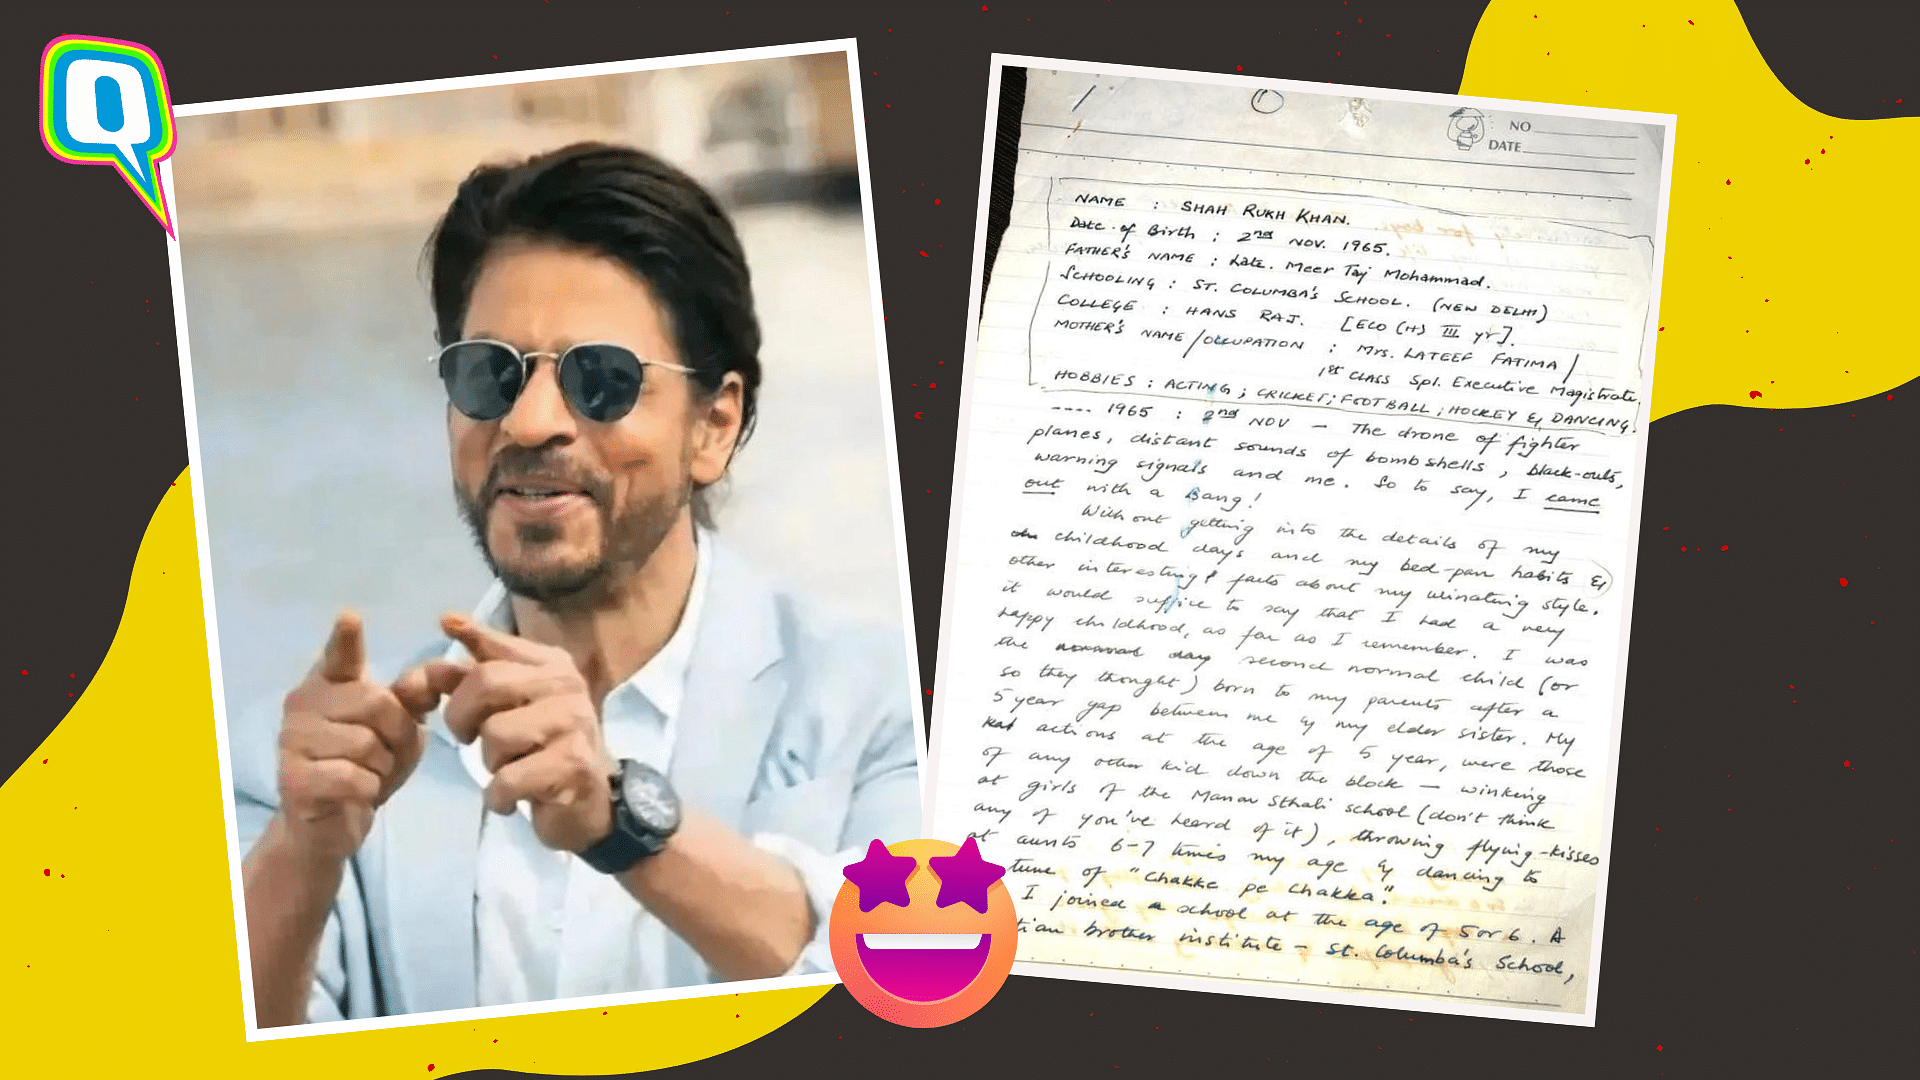 Q
1
NO
DATE
NAME : SHAH RUKH KHAN.
Date of Birth : 2nd NOV. 1965.
FATHER'S NAME : Late. Meer Taj Mohammad.
SCHOOLING : ST. COLUMBA'S SCHOOL. (NEW DELHI)
COLLEGE : HANS RAJ. [ECO (H) III yr].
MOTHER'S NAME/OCCUPATION : Mrs. LATEEF FATIMA /
1st CLASS Spl. Executive Magistrate.
HOBBIES : ACTING ; CRICKET ; FOOTBALL ; HOCKEY & DANCING.
---- 1965 : 2nd NOV — The drone of fighter
planes, distant sounds of bombshells, black-outs,
warning signals and me. So to say, I came
out with a Bang!
Without getting into the details of my
childhood days and my bed-pan habits &
other interesting facts about my urinating style.
it would suffice to say that I had a very
happy childhood, as far as I remember. I was
the normal day second normal child (or
so they thought) born to my parents after a
5 year gap between me & my elder sister. My
actions at the age of 5 year, were those
of any other kid down the block — winking
at girls of the Manav Sthali school (don't think
any of you've heard of it), throwing flying-kisses
at aunts 6-7 times my age & dancing to
tune of "Chakke pe Chakka."
I joined a school at the age of 5 or 6. A
tian brother institute — St. Columba's School,